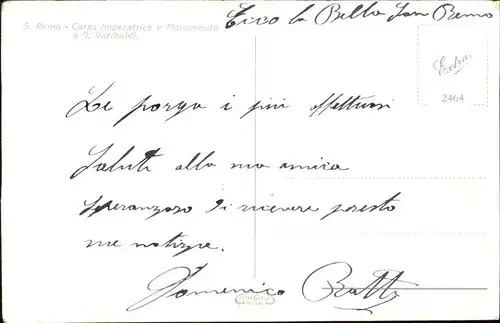 S. Remo - Corso Imperatrice e Monumento
a G. Garibaldi.
Ecco la Bella San Remo
Extra
2464
Le porga i più affettuosi
saluti alla mia amica
speranzoso di ricevere presto
sue notizie.
Domenico